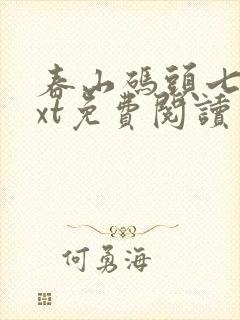 春山碼頭七
xt免費閱讀
何勇海